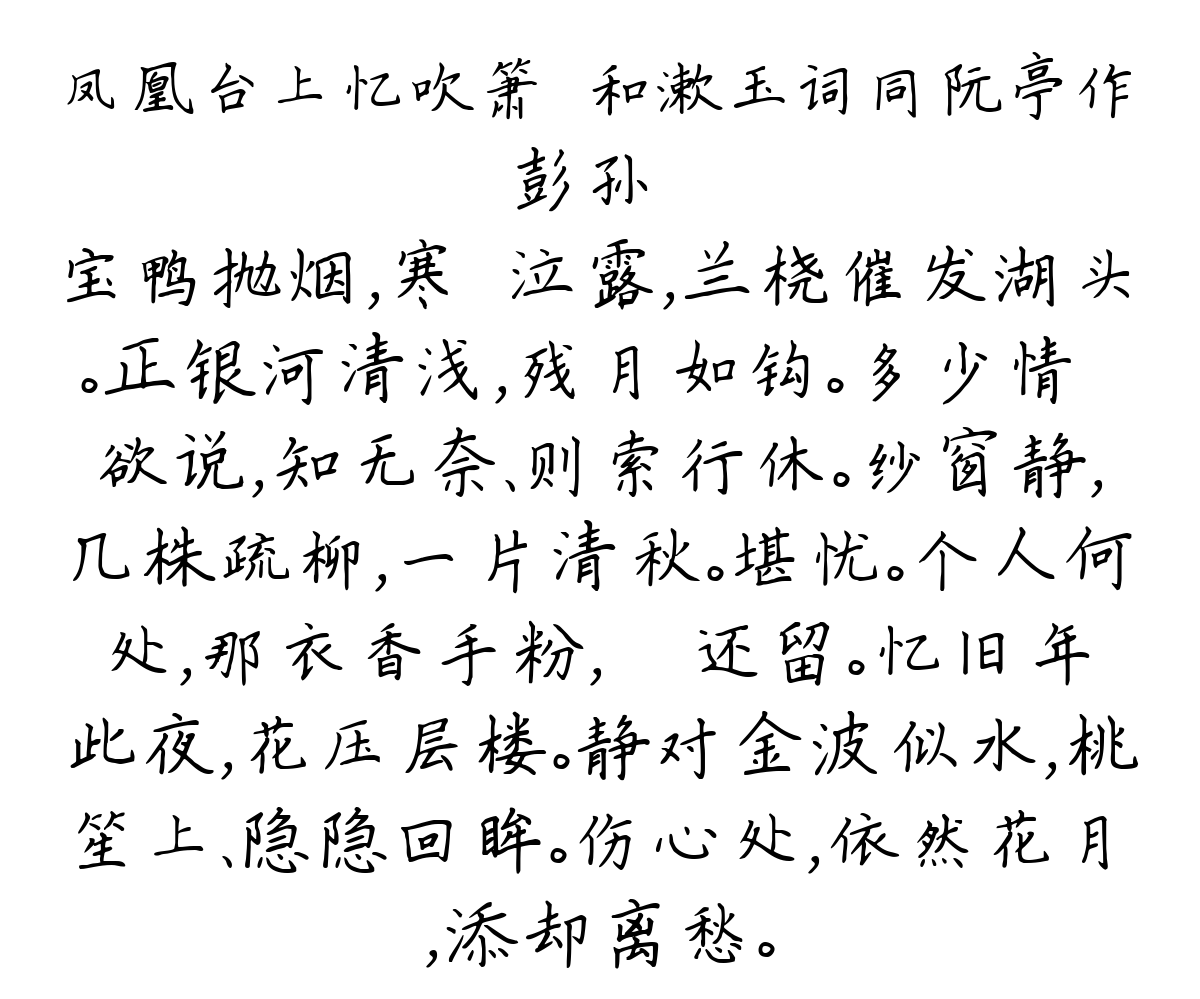 凤凰台上忆吹箫 和漱玉词同阮亭作
彭孙
宝鸭抛烟,寒 泣露,兰桡催发湖头
。正银河清浅,残月如钩。多少情
欲说,知无奈、则索行休。纱窗静,
几株疏柳,一片清秋。堪忧。个人何
处,那衣香手粉, 还留。忆旧年
此夜,花压层楼。静对金波似水,桃
笙上、隐隐回眸。伤心处,依然花月
,添却离愁。